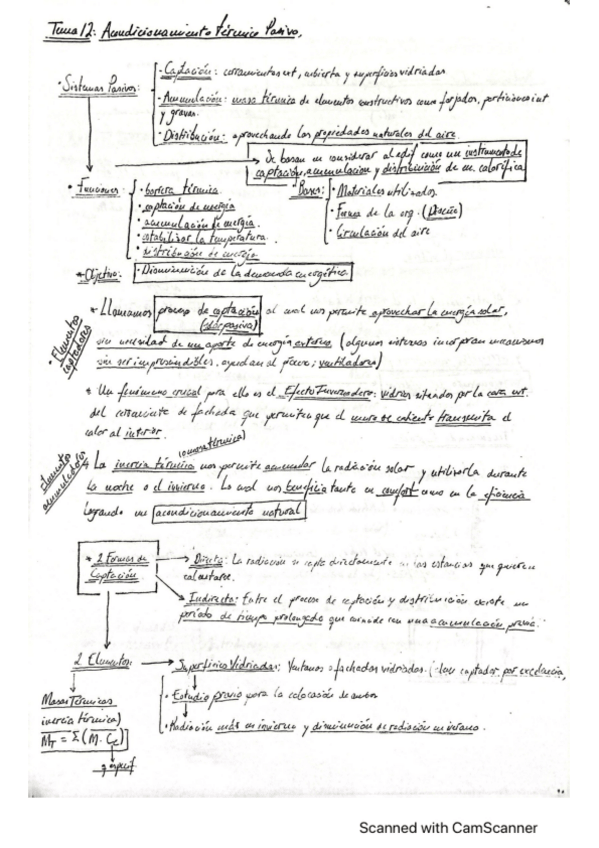 Tema 12: Acondicionamiento térmico Pasivo.
· Sistemas Pasivos:
· Captación: cerramientos ext, cubierta y superficies vidriadas
· Acumulación: masa térmica de elementos constructivos como forjados, particiones int
y gravas.
· Distribución: aprovechando las propiedades naturales del aire.
Se basan en considerar al edif como un instrumento de
captación, acumulación y distribución de en. calorífica
· Funciones:
· barrera térmica
· captación de energía
· acumulación de energía.
· estabilizar la temperatura.
· distribución de energía
Bases:
· Materiales utilizados.
· Forma de la org. (Diseño)
· Circulación del aire
* Objetivo:
· Disminución de la demanda energética
· Elementos
captadores
* Llamamos proceso de captación al cual nos permite aprovechar la energía solar,
(solar pasiva)
sin necesidad de un aporte de energía externo (algunos sistemas incorporan mecanismos
sin ser imprescindibles, ayudan al proceso; ventiladores)
* Un fenómeno crucial para ello es el Efecto Invernadero: vidrios situados por la cara ext.
del cerramiento de fachada que permiten que el muro se caliente transmita el
calor al interior.
Elementos
acumuladores
(o masa térmica)
* La inercia térmica nos permite acumular la radiación solar y utilizarla durante
la noche o el invierno. Lo cual nos beneficia tanto en confort como en la eficiencia
logrando un acondicionamiento natural
* 2 Formas de
Captación.
Directa: La radiación se capta directamente en las estancias que quieren
calentarse.
Indirecta: Entre el proceso de captación y distribución existe un
período de tiempo prolongado que coincide con una acumulación previa.
2 Elementos:
Superficies Vidriadas: Ventanas o fachadas vidriadas. (elem captador por excelencia,
· Estudio previo para la colocación de
· Radiación máx en invierno y disminución de radiación en verano.
Masas Térmicas
inercia térmica)
M_T = Σ(M · Ce)]
Scanned with CamScanner